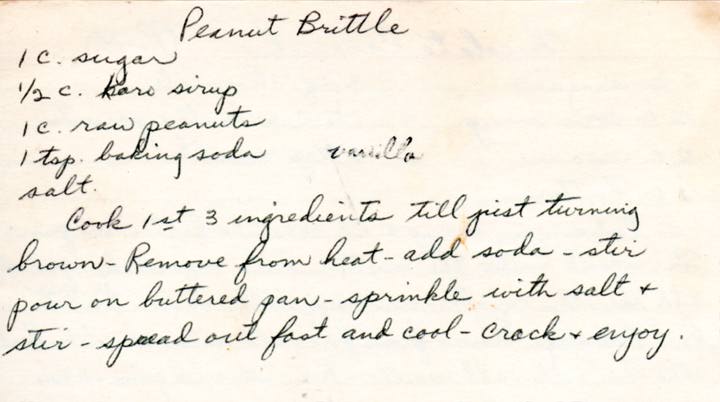 Peanut Brittle
1 c. sugar
1/2 c. karo sirup
1 c. raw peanuts
1 tsp. baking soda vanilla
salt.
Cook 1st 3 ingredients till just turning
brown - Remove from heat - add soda - stir
pour on buttered pan - sprinkle with salt +
stir - spread out fast and cool - crack + enjoy.